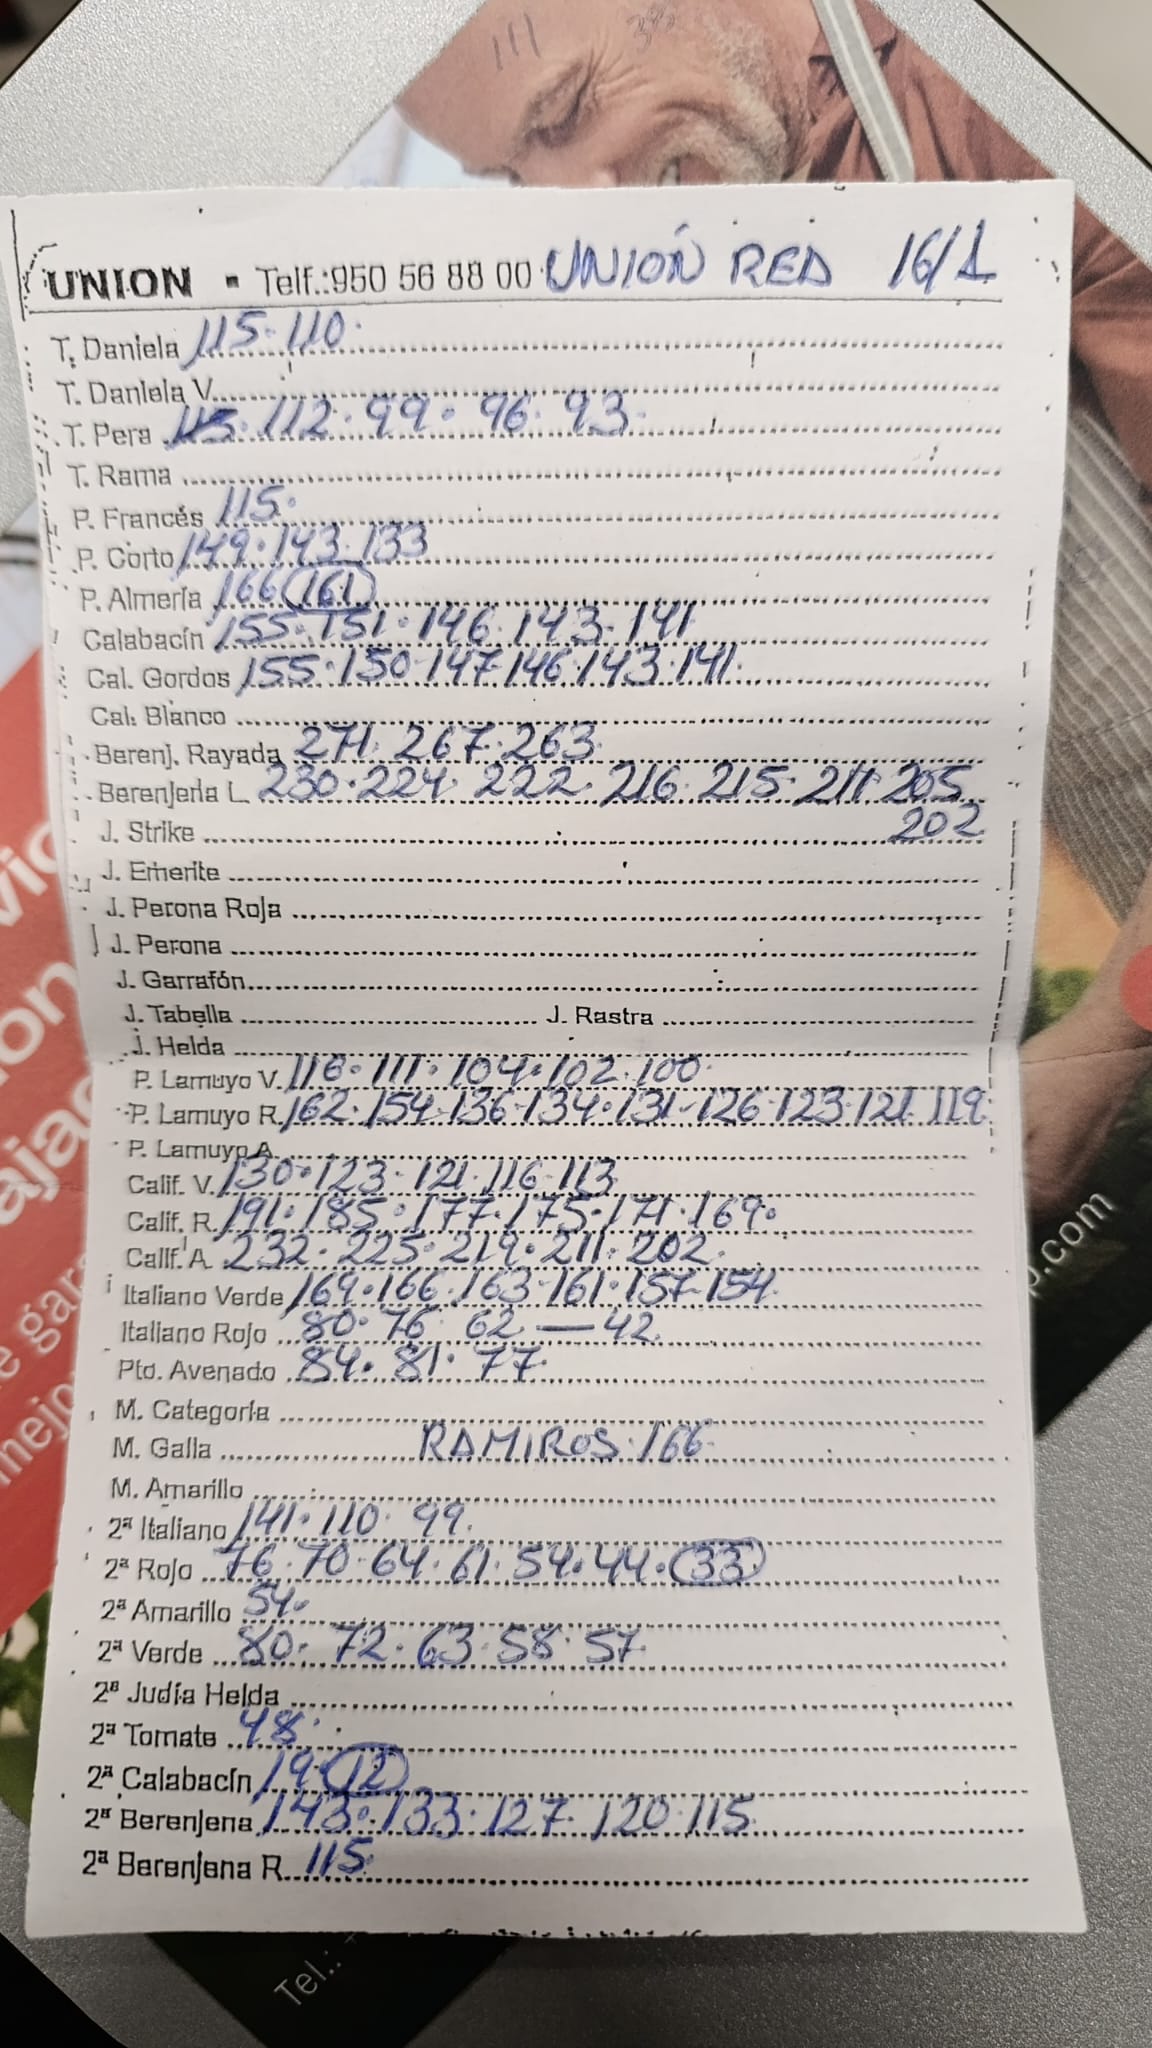 111
UNION - Telf.:950 56 88 00 UNIÓN RED 16/1
T. Daniela 115 · 110 ·
T. Daniela V.
T. Pera 115 · 112 · 99 · 96 · 93 ·
T. Rama
P. Francés 115 ·
P. Corto 149 · 143 · 133
P. Almería 166 161
Calabacín 155 · 151 · 146 · 143 · 141
Cal. Gordos 155 · 150 · 147 146 · 143 · 141 ·
Cal. Blanco
Berenj. Rayada 271 · 267 · 263
Berenjena L. 230 · 224 · 222 · 216 · 215 · 211 205
J. Strike 202
J. Emerite
J. Perona Roja
J. Perona
J. Garrafón
J. Tabella J. Rastra
J. Helda
P. Lamuyo V. 116 · 111 · 104 · 102 · 100
P. Lamuyo R. 162 · 154 · 136 · 134 · 131 - 126 · 123 · 121 119
P. Lamuyo A.
Calif. V. 130 · 123 · 121 · 116 · 113
Calif. R. 191 · 185 · 177 · 175 · 171 · 169 ·
Calif. A. 232 · 225 · 219 · 211 · 202 ·
Italiano Verde 169 · 166 · 163 - 161 · 157 - 154
Italiano Rojo 80 · 76 · 62 — 42
Pto. Avenado 84 · 81 · 77 ·
M. Categoría
M. Galia RAMIROS · 166
M. Amarillo
2ª Italiano 141 · 110 · 99
2ª Rojo 76 · 70 · 64 · 61 · 54 · 44 · 33
2ª Amarillo 54 ·
2ª Verde 80 · 72 · 63 · 58 · 57
2ª Judía Helda
2ª Tomate 48 ·
2ª Calabacín 19 · 12
2ª Berenjena 143 · 133 · 127 · 120 · 115
2ª Berenjena R. 115
.com
Tel.: